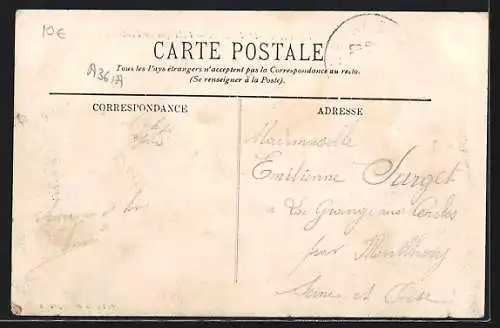 10€
CARTE POSTALE
Tous les Pays étrangers n'acceptent pas la Correspondance au recto.
(Se renseigner à la Poste).
CORRESPONDANCE
ADRESSE
Mademoiselle
Emilienne Surget
à La Grange aux Cercles
par Montlhéry
Seine et Oise